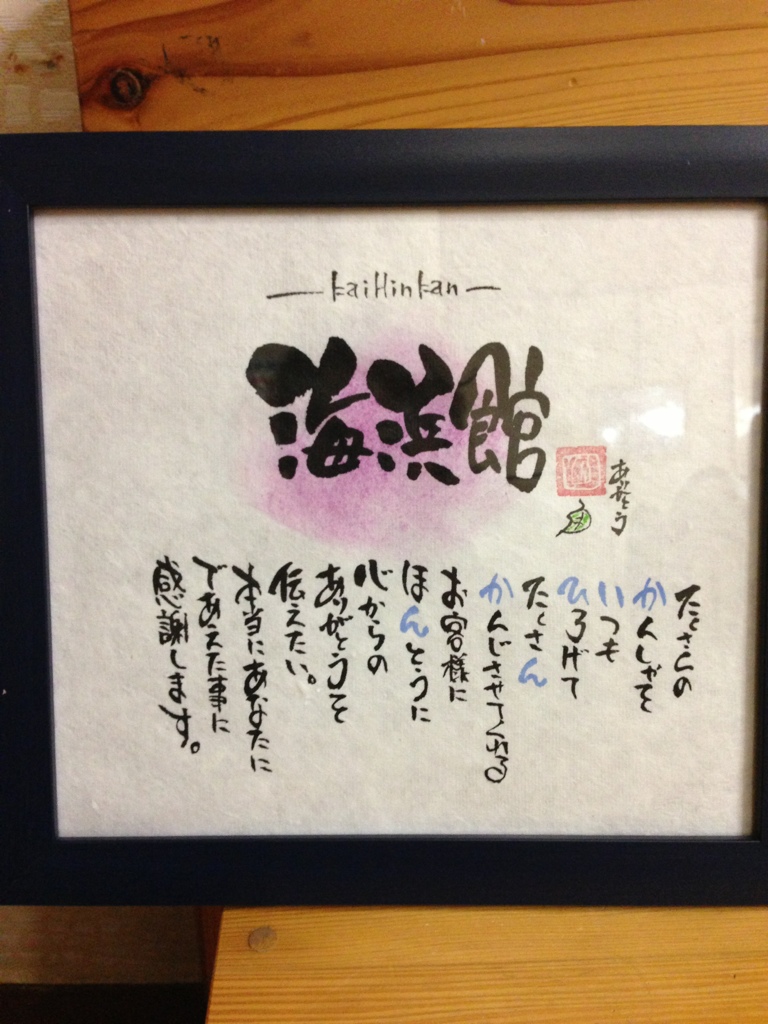 KaiHinKan
海浜館
ありがとう
たくさんの
かんしゃを
いつも
ひろげて
たくさん
かんじさせてくれる
お客様に
ほんとうに
心からの
ありがとうを
伝えたい。
本当にあなたに
であえた事に
感謝します。